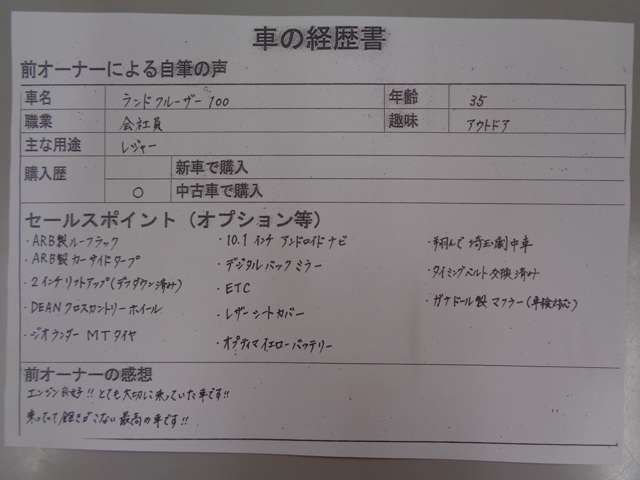 車の経歴書
前オーナーによる自筆の声
車名 ランドクルーザー100 年齢 35
職業 会社員 趣味 アウトドア
主な用途 レジャー
購入歴 新車で購入
○ 中古車で購入
セールスポイント（オプション等）
・ARB製ルーフラック
・ARB製カーサイドタープ
・2インチリフトアップ(デフダウン済み)
・DEANクロスカントリーホイール
・ジオランダーMTタイヤ
・10.1インチ アンドロイドナビ
・デジタルバックミラー
・ETC
・レザーシートカバー
・オプティマイエローバッテリー
・翔んで埼玉劇中車
・タイミングベルト交換済み
・ガナドール製マフラー(車検対応)
前オーナーの感想
エンジン良好!!とても大切に乗っていた車です!!
乗ってて飽きがこない最高の車です!!